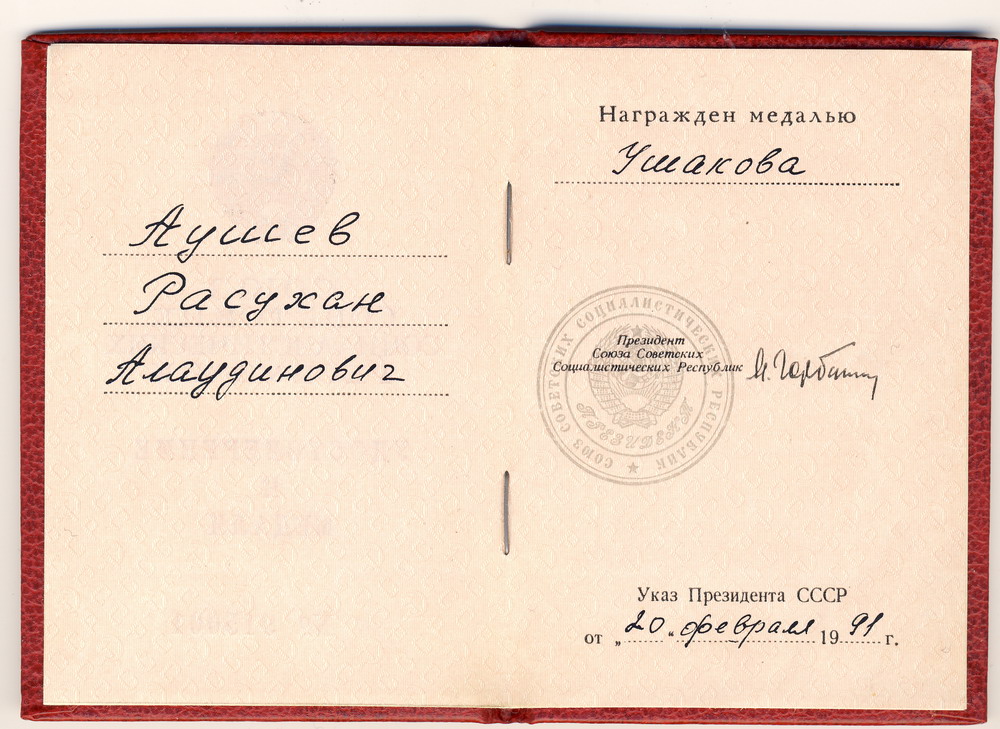 Аушев
Расухан
Алаудинович
Награжден медалью
Ушакова
Президент
Союза Советских
Социалистических Республик
М. Горбачев
СОЮЗ СОВЕТСКИХ СОЦИАЛИСТИЧЕСКИХ РЕСПУБЛИК
ПРЕЗИДЕНТ
Указ Президента СССР
от „20“ февраля 1991 г.